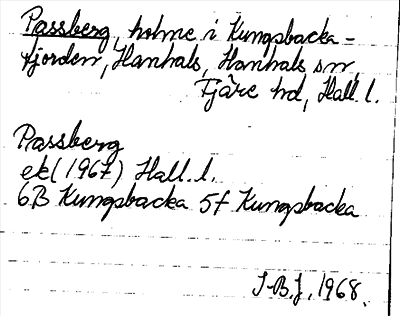 Passberg, holme i Kungsbacka-
fjorden, Hanhals, Hanhals sn,
Fjäre hd, Hall. l.
Passberg
ek (1967) Hall. l.
6B Kungsbacka 5f Kungsbacka
I-B.J. 1968.